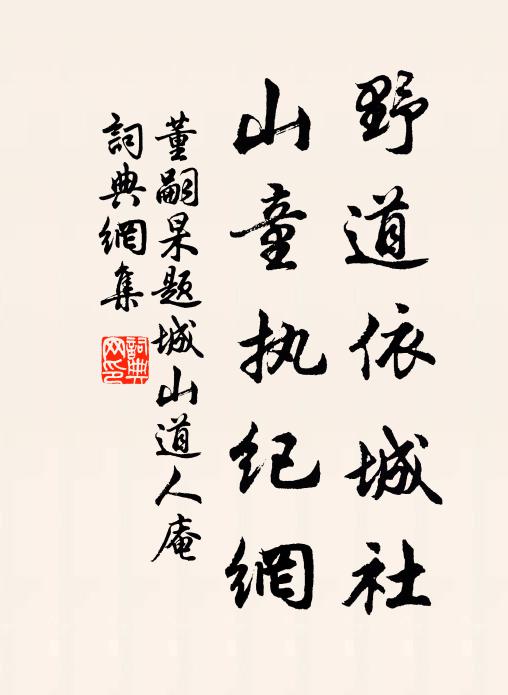 野道依城社
山童执纪網
董嗣杲题城山道人庵
詞典網集
詞典網印